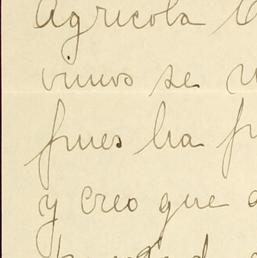 Agricola
vimos se
pues ha
y creo que